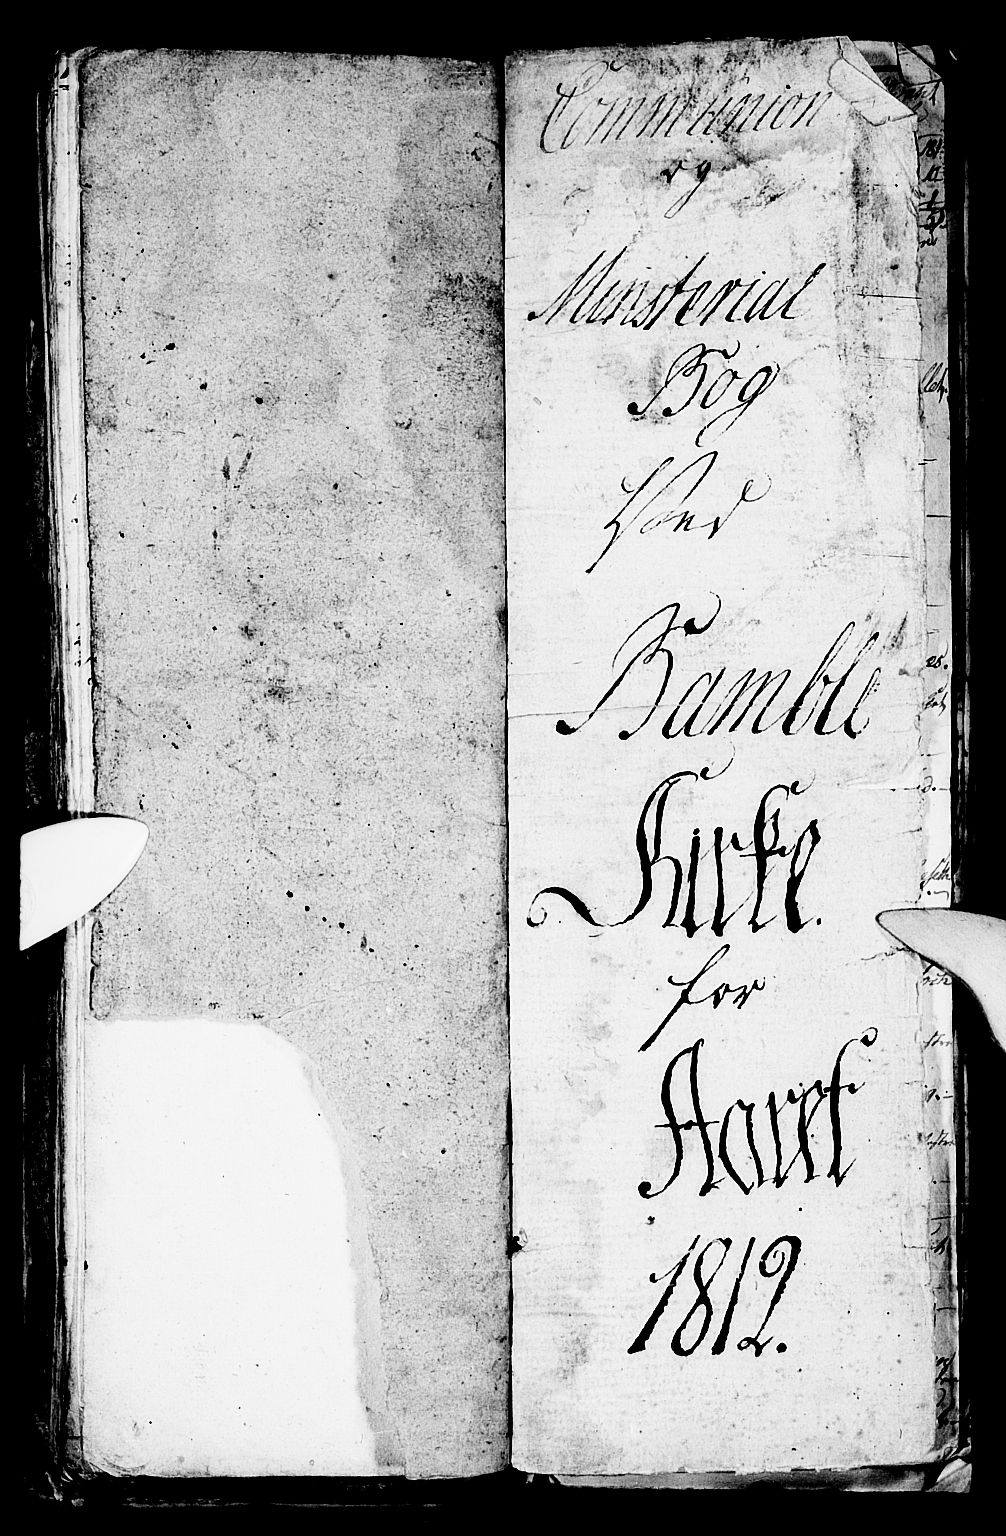 Communion
og
Ministerial
Bog
Ved
Bamble
Kirke.
for
Aaret
1812.